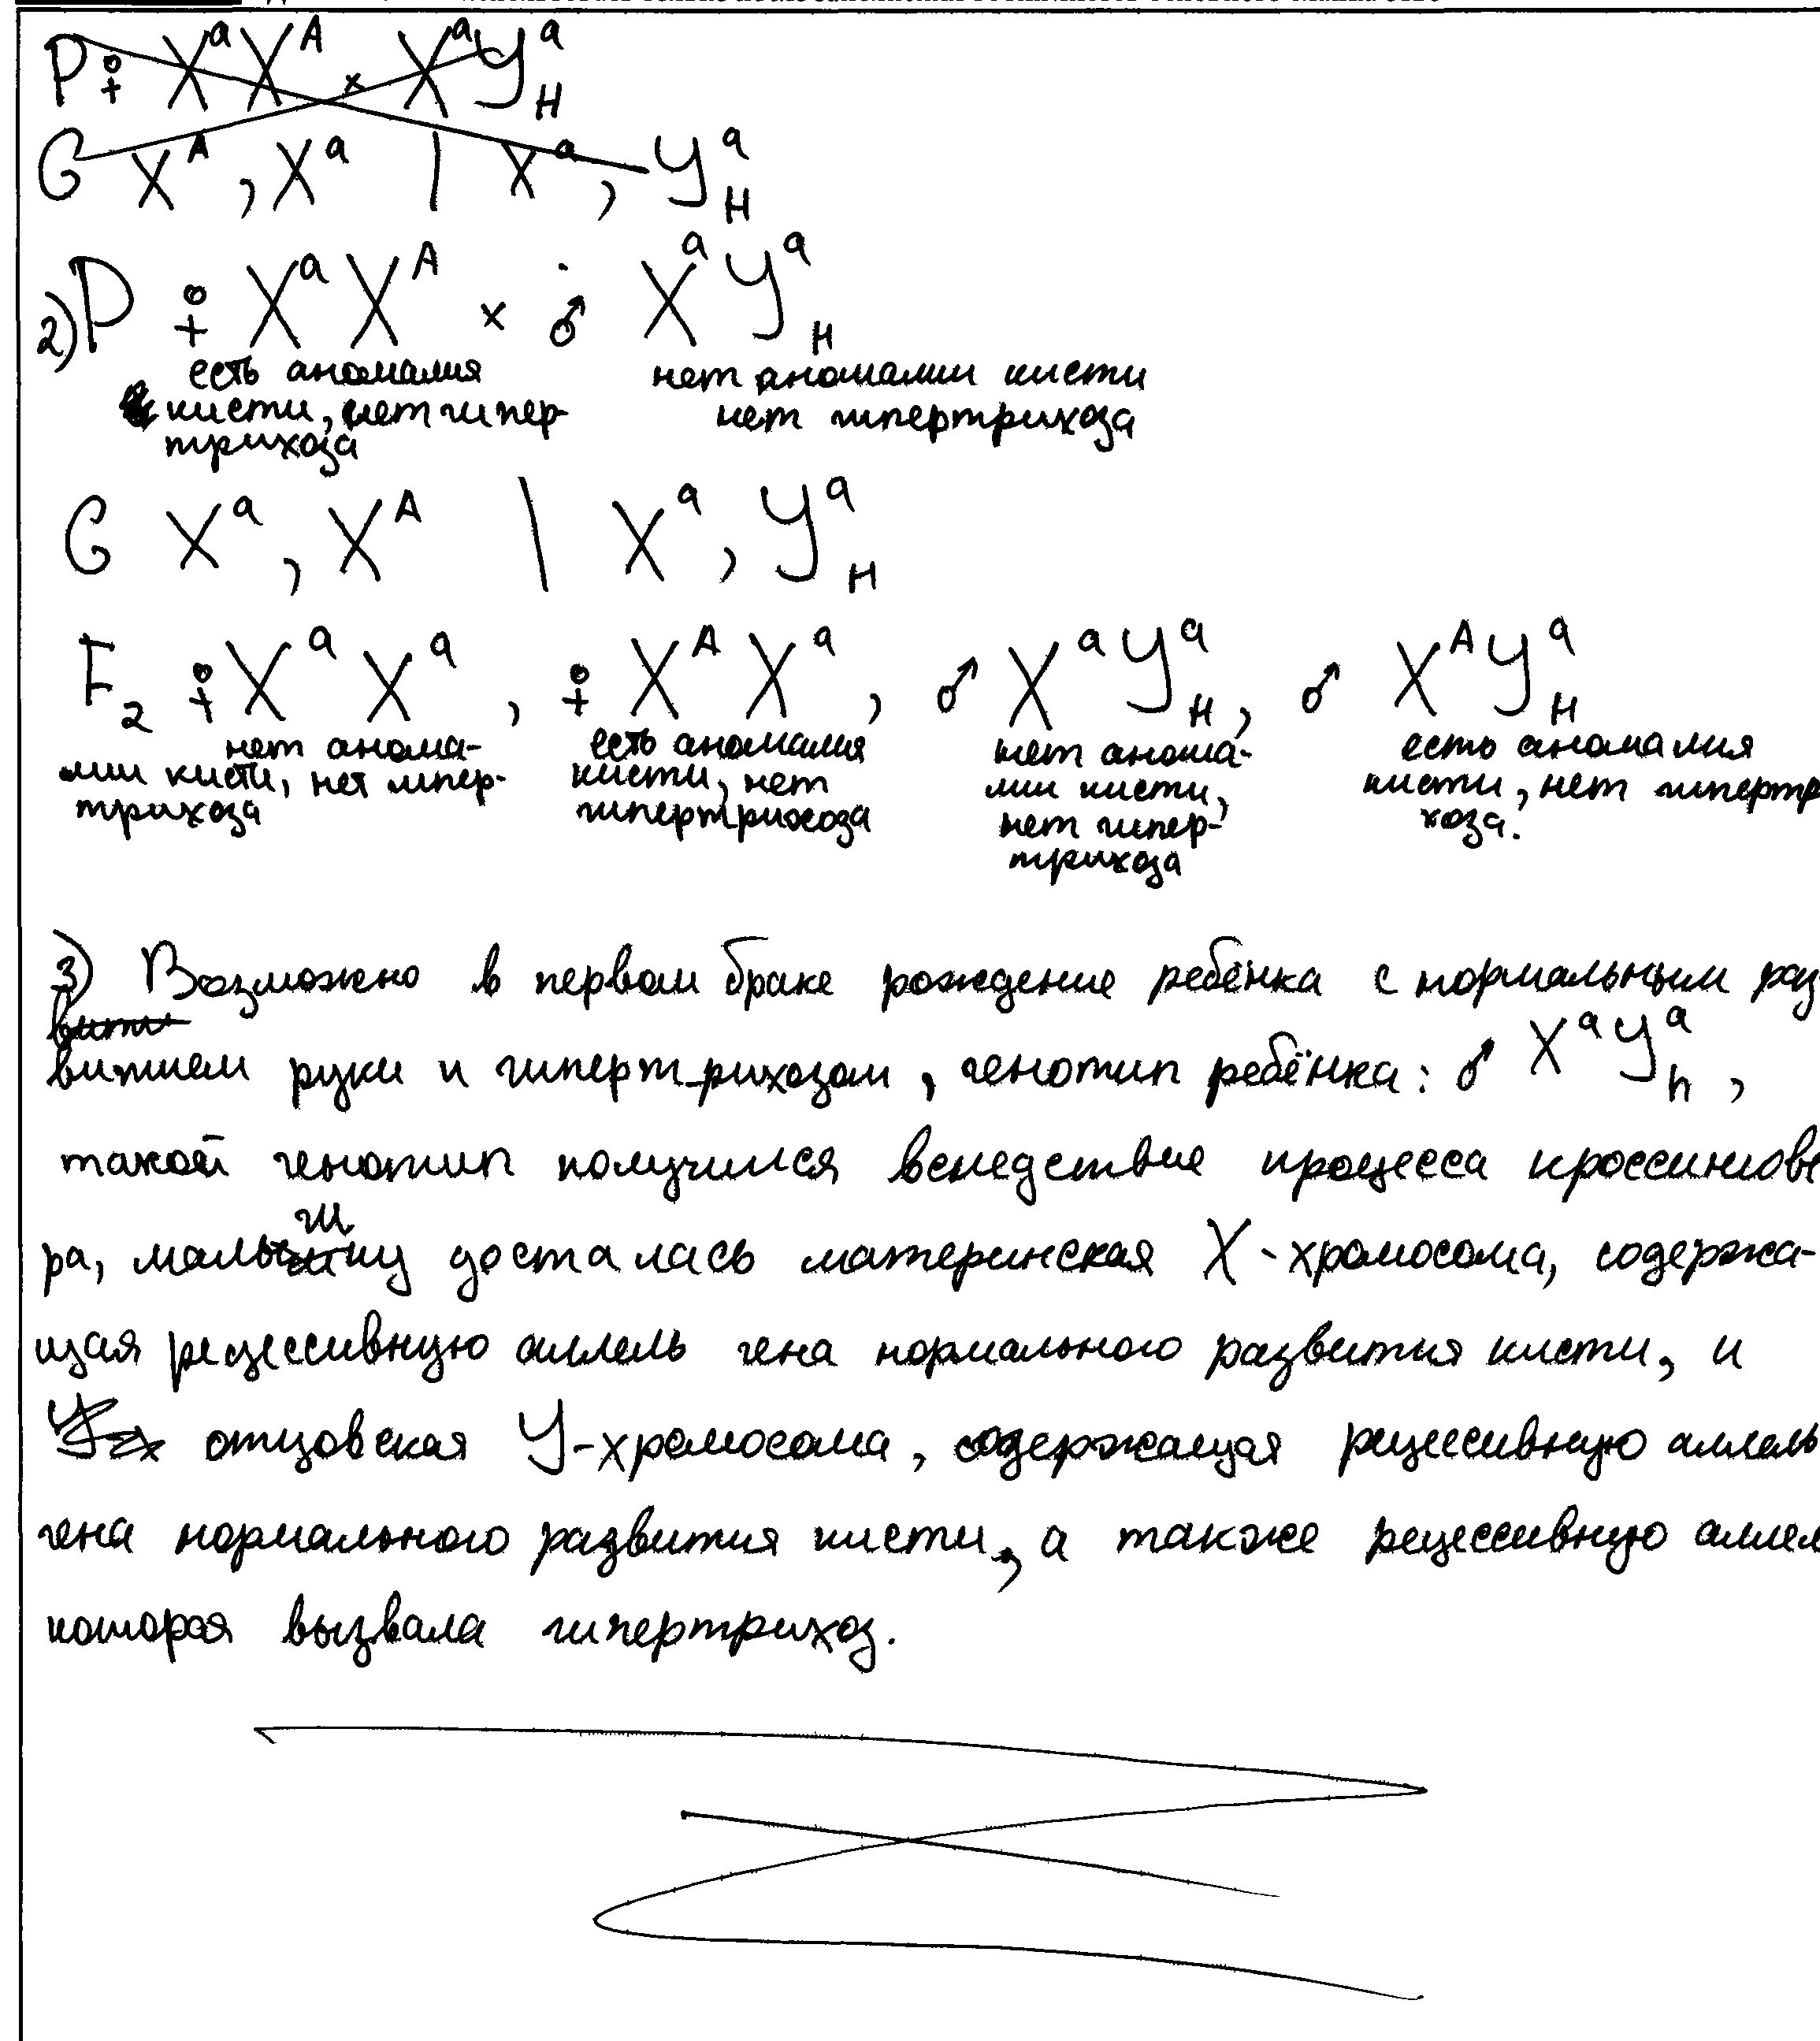 P ♀ XᵃXᴬ × XᵃYᵃ_H
G Xᴬ, Xᵃ | Xᵃ, Yᵃ_H
2) P ♀ XᵃXᴬ × ♂ XᵃYᵃ_H
есть аномалия нет аномалии кисти
кисти, нет гипер- нет гипертрихоза
трихоза
G Xᵃ, Xᴬ | Xᵃ, Yᵃ_H
F₂ ♀ XᵃXᵃ, ♀ XᴬXᵃ, ♂ XᵃYᵃ_H, ♂ XᴬYᵃ_H
нет анома- есть аномалия нет анома- есть аномалия
лии кисти, нет гипер- кисти, нет лии кисти, кисти, нет гипертр
трихоза гипертрихоза нет гипер- хоза.
трихоза
3) Возможно в первом браке рождение ребёнка с нормальным раз
витием руки и гипертрихозом, генотип ребёнка: ♂ XᵃYᵃ_h,
такой генотип получился вследствие процесса кроссингове
ра, мальчику досталась материнская X-хромосома, содержа-
щая рецессивную аллель гена нормального развития кисти, и
отцовская Y-хромосома, содержащая рецессивную аллель
гена нормального развития кисти, а также рецессивную аллел
которая вызвала гипертрихоз.